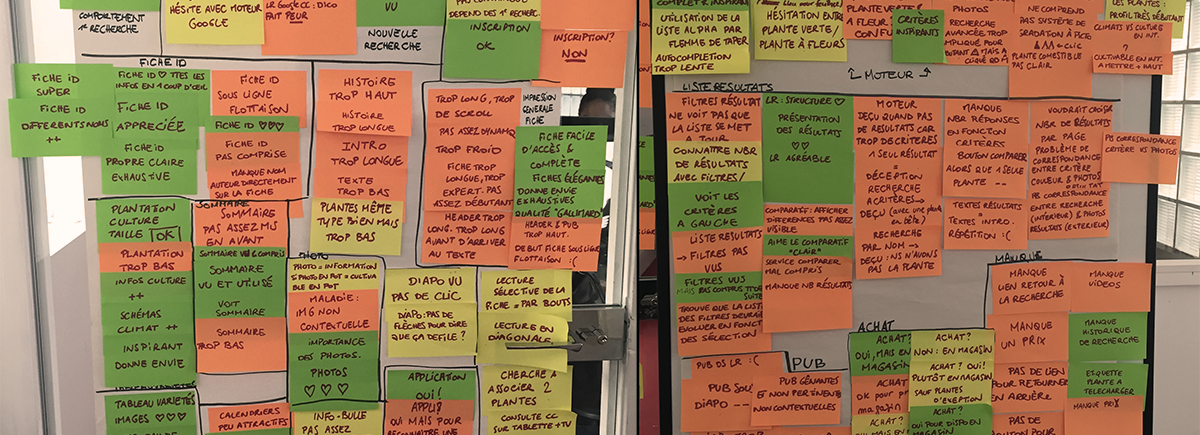 COMPORTEMENT
1e RECHERCHE
HÉSITE AVEC MOTEUR
GOOGLE
LR GOOGLE CC: DICO
FAIT PEUR
VU
NOUVELLE
RECHERCHE
DEPEND DES 1e RECHERC.
INSCRIPTION
OK
INSCRIPTION?
NON
FICHE ID
FICHE ID
SUPER
FICHE ID
DIFFERENTS NOMS
++
FICHE ID ♡ TTES LES
INFOS EN 1 COUP D'ŒIL
FICHE ID
APPRECIÉE
FICHE ID
PROPRE CLAIRE
EXHAUSTIVE
FICHE ID
SOUS LIGNE
FLOTTAISON
FICHE ID ♡♡♡
FICHE ID
PAS COMPRISE
MANQUE NOM
AUTEUR DIRECTEMENT
SUR LA FICHE
HISTOIRE
TROP HAUT
HISTOIRE
TROP LONGUE
INTRO
TROP LONGUE
TEXTE
TROP BAS
PLANTES MÊME
TYPE BIEN MAIS
TROP BAS
TROP LONG, TROP
DE SCROLL
PAS ASSEZ DYNAMQ
TROP FROID
FICHE TROP
LONGUE, TROP
EXPERT. PAS
ASSEZ DÉBUTANT
HEADER TROP
LONG. TROP LONG
AVANT D'ARRIVER
AU TEXTE
IMPRESSION
GENERALE
FICHE
FICHE FACILE
D'ACCÈS &
COMPLÈTE
FICHES ÉLÉGANTES
DONNE ENVIE
EXHAUSTIVES
QUALITÉ "GALLIMARD"
HEADER & PUB
TROP HAUT.
DEBUT FICHE SOUS LIGNE
FLOTTAISON :(
PLANTATION
CULTURE
TAILLE OK
PLANTATION
TROP BAS
INFOS CULTURE
++
SCHÉMAS
CLIMAT ++
INSPIRANT
DONNE ENVIE
TABLEAU VARIÉTÉS
IMAGES ♡♡♡
SOMMAIRE
SOMMAIRE
PAS ASSEZ MIS
EN AVANT
SOMMAIRE VU & COMPRIS
SOMMAIRE
VU ET UTILISÉ
VOIT
SOMMAIRE
SOMMAIRE
TROP BAS
CALENDRIERS
PEU ATTRACTIFS
PHOTO
PHOTO = INFORMATION
SI PHOTO EN POT = CULTIVA
BLE EN POT
MALADIE:
IMG NON
CONTEXTUELLE
IMPORTANCE
DES PHOTOS.
PHOTOS
♡♡♡
INFO-BULLE
PAS ASSEZ
DIAPO VU
PAS DE CLIC
DIAPO: PAS DE
FLÈCHES POUR DIRE
QUE ÇA DEFILE?
APPLICATION
OUI!
APPLI?
QUI MAIS POUR
RECONNAITRE UNE
LECTURE
SÉLECTIVE DE LA
FICHE = PAR BOUTS
LECTURE EN
DIAGONALE
CHERCHE A
ASSOCIER 2
PLANTES
CONSULTE CC
SUR TABLETTE + TV
UTILISATION DE LA
LISTE ALPHA PAR
FLEMME DE TAPER
AUTOCOMPLETION
TROP LENTE
HÉSITATION ENTRE
PLANTE VERTE /
PLANTE À FLEURS
PLANTE VERTE &
A FLEUR:
CONFU
CRITÈRES
INSPIRANTS
PHOTOS
RECHERCHE
AVANCÉE, TROP
NE COMPREND
PAS SYSTÈME DE
GRADATION À PICTO
PLANTE COMESTIBLE
PAS CLAIR
LES PLANTES:
PROFIL TRÈS DÉBUTANT
CLIMATS VS CULTURE
EN INT.
?
CULTIVABLE EN INT.
A METTRE + HAUT
MOTEUR
LISTE RESULTATS
FILTRES RÉSULTAT
NE VOIT PAS QUE
LA LISTE SE MET
À JOUR
CONNAITRE NBR
DE RÉSULTATS
AVEC FILTRES /
VOIT LES
CRITÈRES
À GAUCHE
LISTE RÉSULTATS
→ FILTRES PAS
VUS
FILTRES VUS
TROUVE QUE LA LISTE
DES FILTRES DEVRAIT
EVOLUER EN FONCT
DES SÉLECTION
LR: STRUCTURE ♡
PRÉSENTATION
DES RÉSULTATS
♡♡
LR AGRÉABLE
COMPARATIF: AFFICHER
DIFFERENCES PAS ASSEZ
VISIBLE
AIME LE COMPARATIF
"CLAIR"
SERVICE COMPARER
MAL COMPRIS
MANQUE NB RÉSULTATS
MOTEUR
DEÇU QUAND PAS
DE RESULTATS CAR
TROP DE CRITERES
A SEUL RÉSULTAT
DÉCEPTION
RECHERCHE
A CRITÈRES →
DEÇU (AVEC UNE PLANTE
EN TÊTE)
RECHERCHE
PAR NOM →
DEÇU: NS N'AVONS
PAS LA PLANTE
MANQUE
NBR RÉPONSES
EN FONCTION
CRITÈRES
BOUTON COMPARER
ALORS QUE 1 SEULE
PLANTE --
TEXTES RÉSULTATS
= TEXTES INTRO.
RÉPÉTITION :(
VOUDRAIT CROISER
NBR DE RÉSULTATS
PAR PAGE
PROBLÈME DE
CORRESPONDANCE
ENTRE CRITÈRE
COULEUR & PHOTOS
ENTRE RECHERCHE
(INTÉRIEUR) & PHOTOS
RÉSULTATS (EXTERIEUR)
PB CORRESPONDANCE
CRITÈRE VS PHOTOS
MANQUE
MANQUE
LIEN RETOUR À
LA RECHERCHE
MANQUE
VIDEOS
MANQUE
UN PRIX
MANQUE
HISTORIQUE
DE RECHERCHE
PAS DE LIEN
POUR RETOURNER
EN ARRIÈRE
ETIQUETTE
PLANTE À
TELECHARGER
MANQUE PRIX
PAS DE
BOUTON POUR
PUB DS LR :(
PUB
PUB SOUS
DIAPO --
PUB GÊNANTES
ET NON PERTINENTES
NON CONTEXTUELLES
ACHAT
ACHAT?
OUI, MAIS EN
MAGASIN
ACHAT
OK POUR
MAGASIN
ACHAT?
NON: EN MAGASIN
ACHAT? OUI!
PLUTÔT EN MAGASIN
SAUF PLANTES
D'EXEPTION
ACHAT?
OUI POUR DISPO EN
MAGASIN